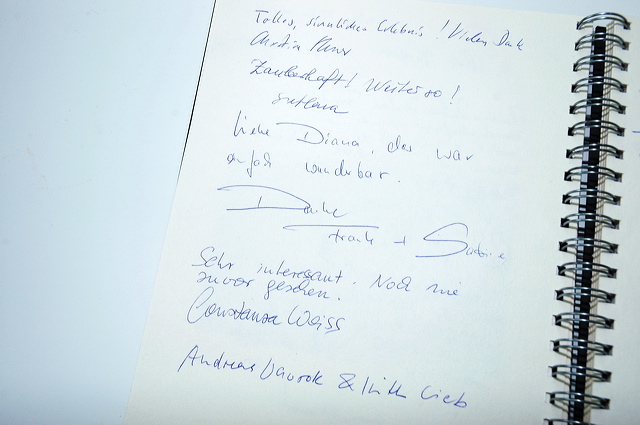 Tolles, sinnliches Erlebnis! Vielen Dank
Zauberhaft! Weiter so!
Liebe Diana, das war
einfach wunderbar.
Danke
Frank + Sabine
Sehr interessant. Noch nie
zuvor gesehen.
Constanza Weiss
Andreas & Lieb